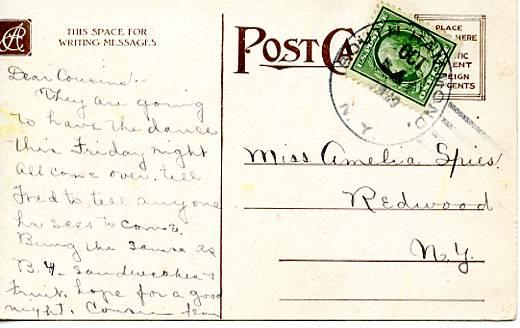 THIS SPACE FOR
WRITING MESSAGES
POST CA
PLACE
HERE
Dear Cousins:-
They are going
to have the dance
this Friday night
All come over. tell
Fred to tell anyone
he sees to come.
Bring the same as
B.4. sandwiches &
fruit. hope for a good
night. Cousin
Miss Amelia Spies.
Redwood
N.Y.
OCT
N.Y.
CENTS